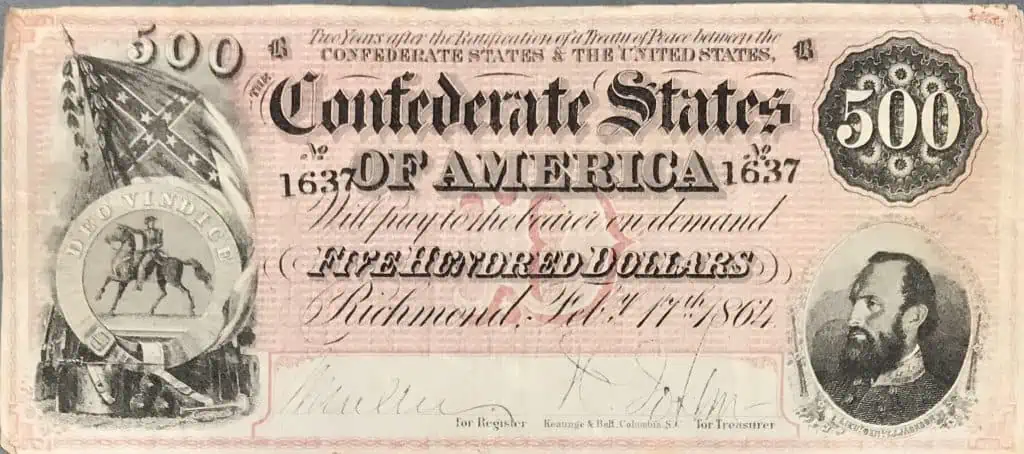 500
B Two Years after the Ratification of a Treaty of Peace between the B
CONFEDERATE STATES & THE UNITED STATES,
THE
Confederate States
500
No No
1637 OF AMERICA 1637
DEO VINDICE
Will pay to the bearer on demand
FIVE HUNDRED DOLLARS
Richmond, Feby. 17th. 1864.
for Register Keatinge & Ball, Columbia, S.C. for Treasurer
LIEUT. GENL. T.J. JACKSON